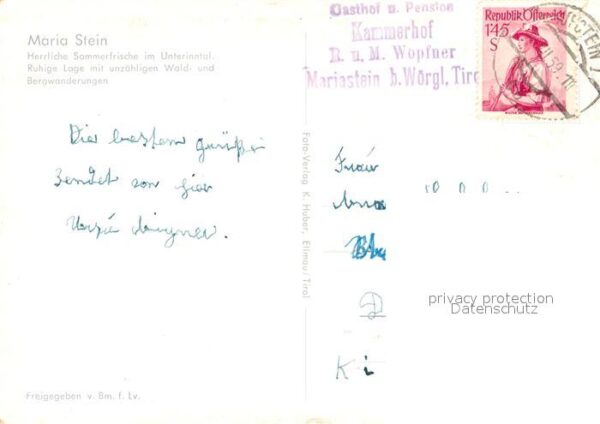 Maria Stein
Herrliche Sommerfrische im Unterinntal.
Ruhige Lage mit unzähligen Wald- und
Bergwanderungen
Gasthof u. Pension
Kammerhof
R. u. M. Wopfner
Mariastein b. Wörgl, Tirol
Republik Österreich
1'45
S
Die besten Grüße
sendet von hier
Foto-Verlag K. Huber, Ellmau/Tirol
Frau
privacy protection
Datenschutz
Freigegeben v. Bm. f. Lv.